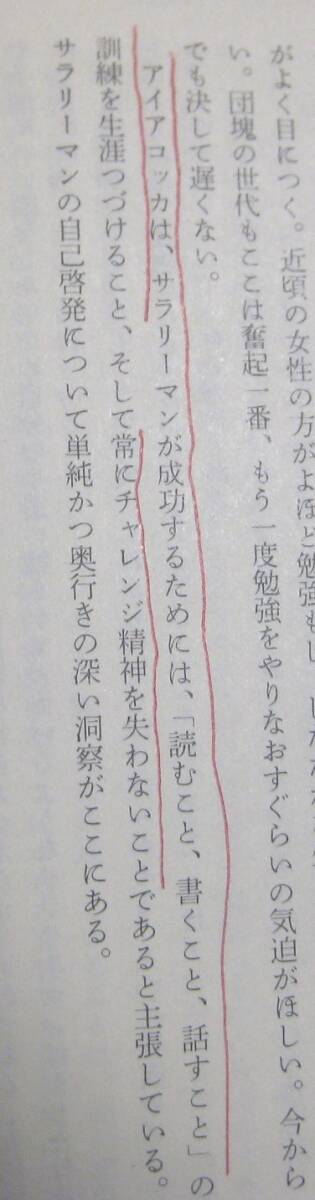 がよく目につく。近頃の女性の方がよほど勉強もし
い。団塊の世代もここは奮起一番、もう一度勉強をやりなおすぐらいの気迫がほしい。今から
でも決して遅くない。
アイアコッカは、サラリーマンが成功するためには、「読むこと、書くこと、話すこと」の
訓練を生涯つづけること、そして常にチャレンジ精神を失わないことであると主張している。
サラリーマンの自己啓発について単純かつ奥行きの深い洞察がここにある。